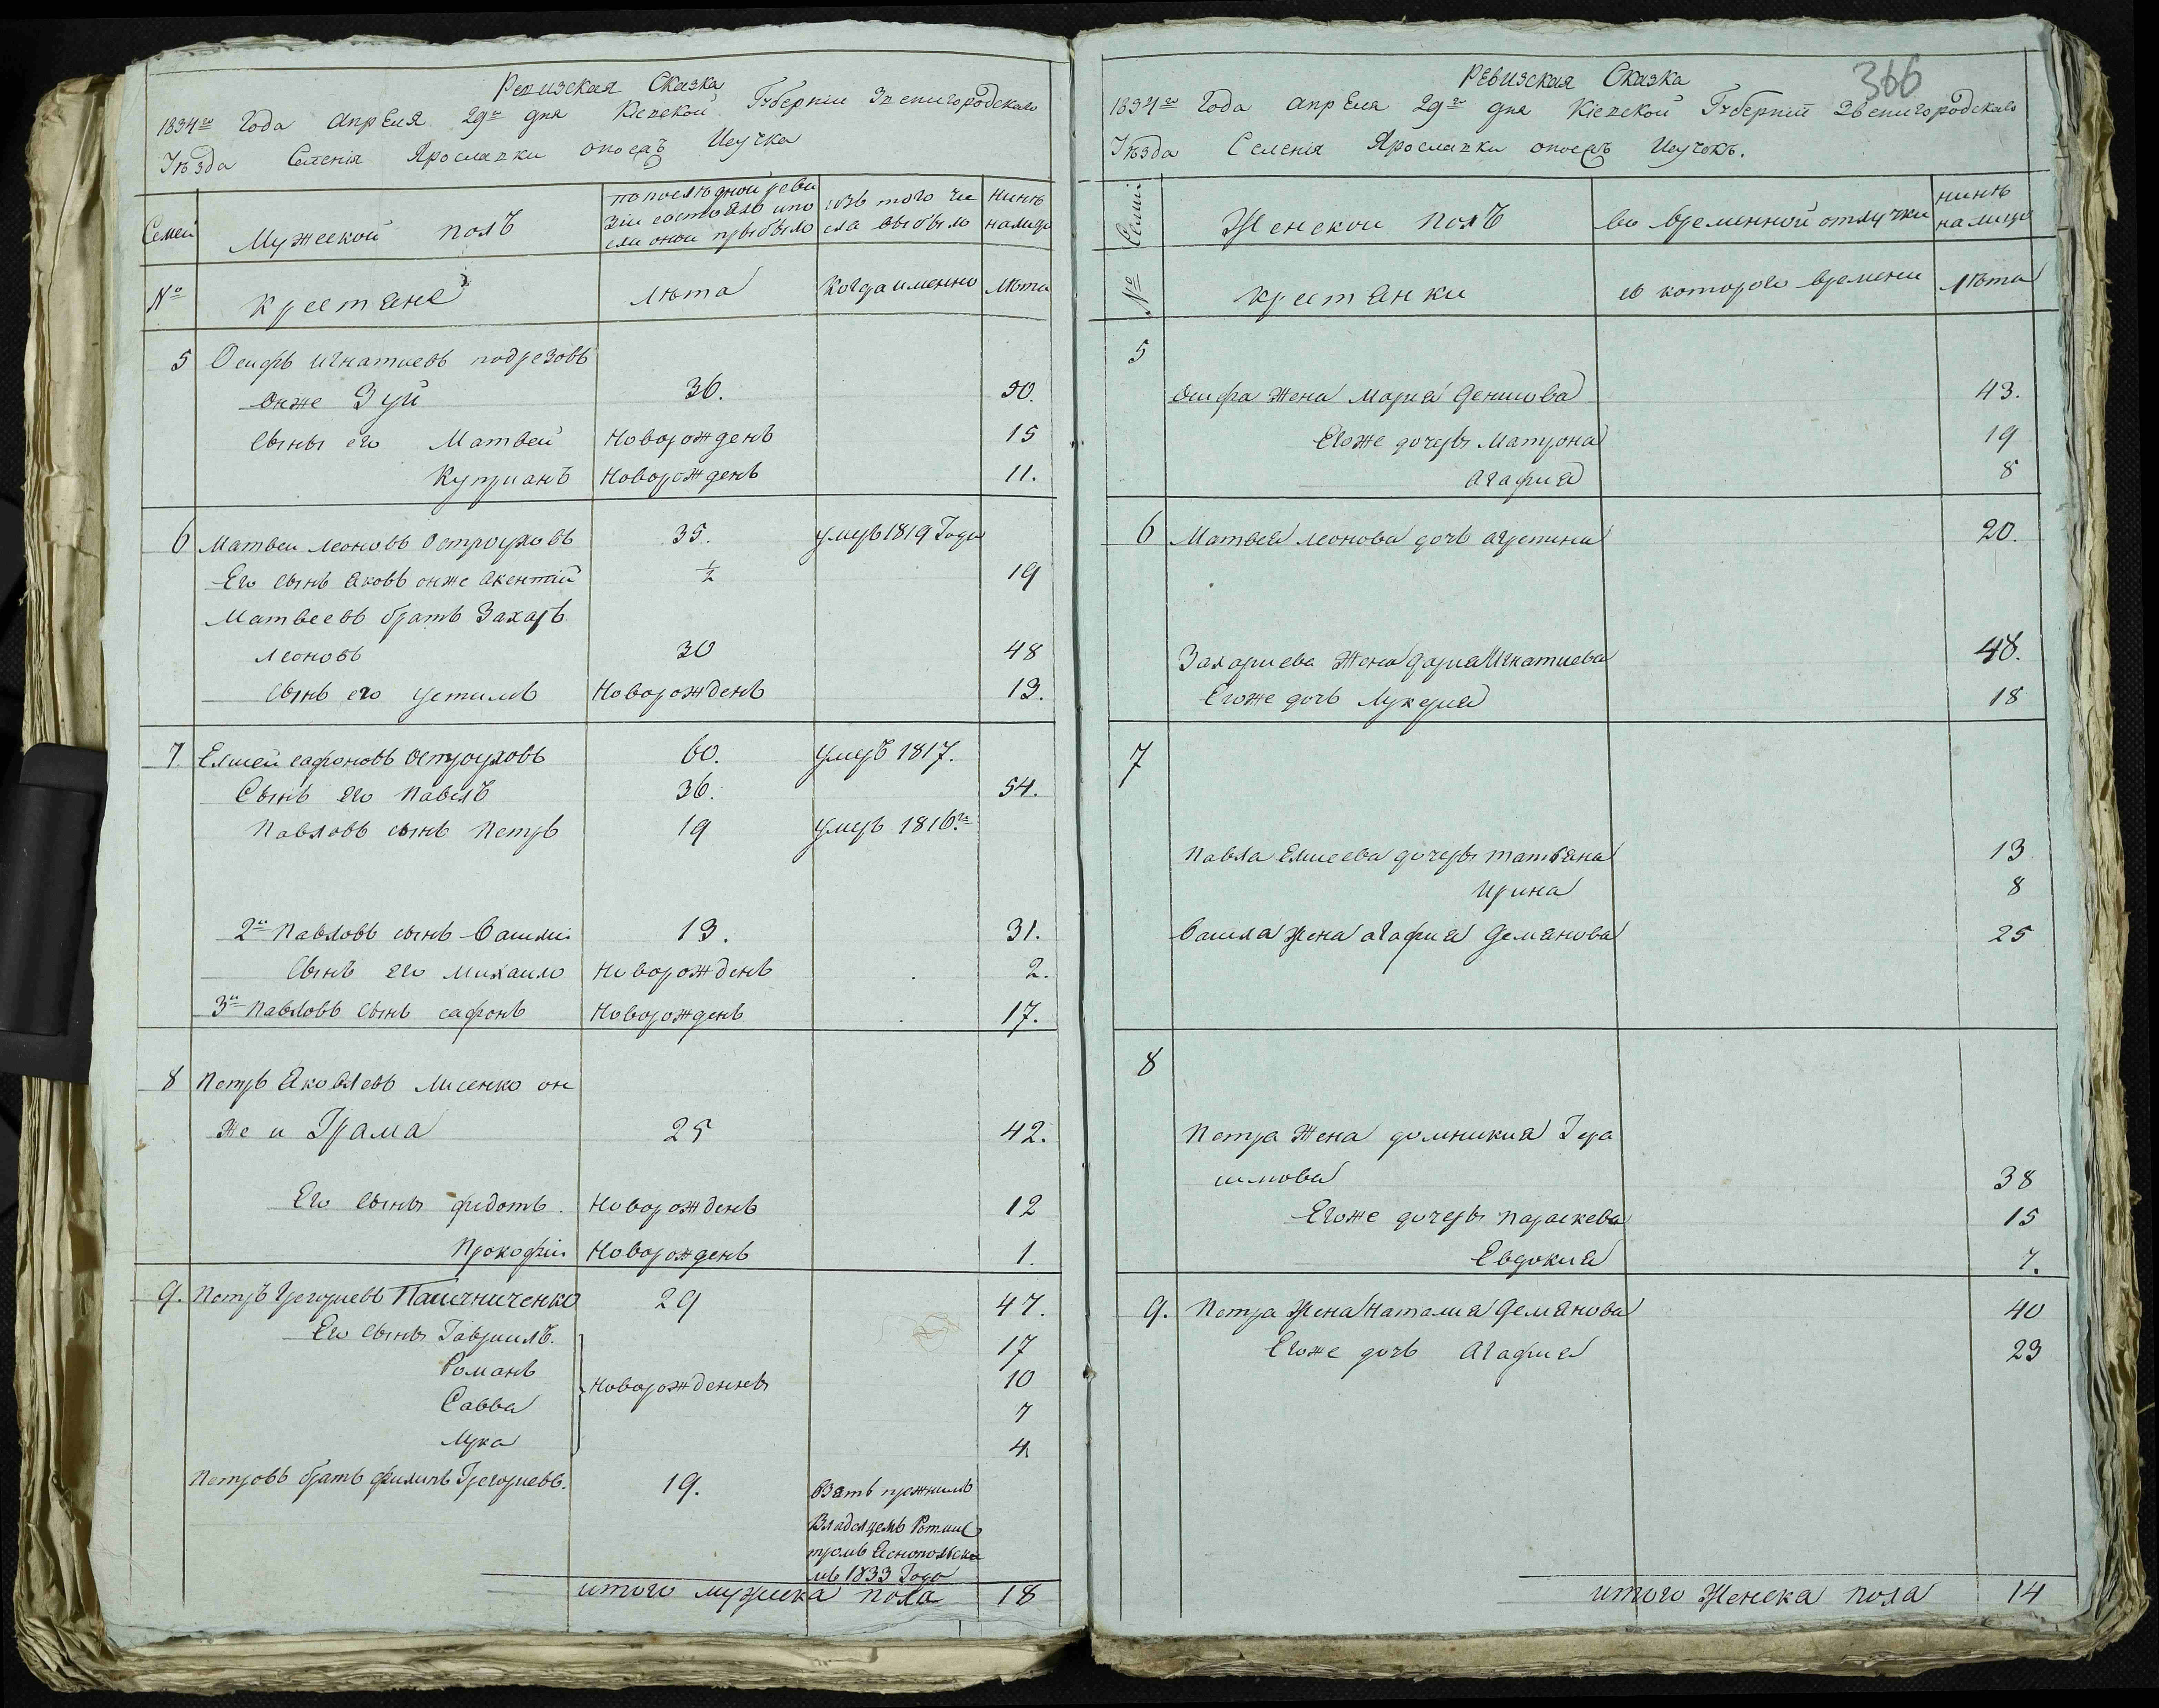 Ревизская Сказка
1834го Года Апреля 29го дня Кіевской Губерніи Звенигородскаго
Уѣзда Селенія Ярославки
Семей
Мужеской полъ
по последной реви
зіи состояло и по
сли оной прыбыло
изъ того чи
сла выбыло
нинѣ
налицо
№
крестяне
лѣта
Когда именно
лѣта
5 Осифъ Игнатиевъ подрезовъ
онже Зуй 36. 50.
сыны его Матвей Новорожденъ 15
Куприанъ Новорожденъ 11.
6 Матвей леоновъ Остроуховъ 35. умеръ 1819 Года
Его сынъ Яковъ онже Акентій ½ 19
Матвеевъ братъ Захаръ
леоновъ 30 48
сынъ его Устимъ Новорожденъ 13.
7 Елисей сафоновъ Остроуховъ 60. умеръ 1817.
Сынъ его Павелъ 36. 54.
Павловъ сынъ Петръ 19 умеръ 1816го
2й Павловъ сынъ Василий 13. 31.
Сынъ его Михаило Новорожденъ 2.
3й Павловъ сынъ сафонъ Новорожденъ 17.
8 Петръ Яковлевъ Лисенко он
же и Грама 25 42.
Его сыны федотъ Новорожденъ 12
Прокофий Новорожденъ 1.
9. Петръ Григориевъ Пасичниченко 29 47.
Его сыны Гавриилъ. 17
Романъ 10
Новорожденны
Савва 7
Лука 4
Петровъ братъ филипъ Григориевъ. 19. Взятъ прежнимъ
Владелцемъ Ротмис
тромъ Яснополски
мъ 1833 Года
итого мужеска пола 18
366
Ревизская Сказка
1834го Года Апреля 29го дня Кіевской Губерніи Звенигородскаго
Уѣзда Селенія Ярославки
Семей
Женской полъ
во временной отлучки
нинѣ
налицо
№
крестянки
съ которого времени
лѣта
5
Осифа жена Мария Денисова 43.
Егоже дочеры Матрона 19
Агафия 8
6 Матвея леонова дочь Агрепина 20.
Захариева жена Дария Игнатиева 48.
Егоже дочь Лукерия 18
7
Павла Елисеева дочеры татяна 13
Ирина 8
Васила жена Агафия Демянова 25
8
Петра жена домникия Гера
симова 38
Егоже дочеры параскева 15
Евдокия 7.
9. Петра жена Наталия Демянова 40
Егоже дочь Агафия 23
итого женска пола 14